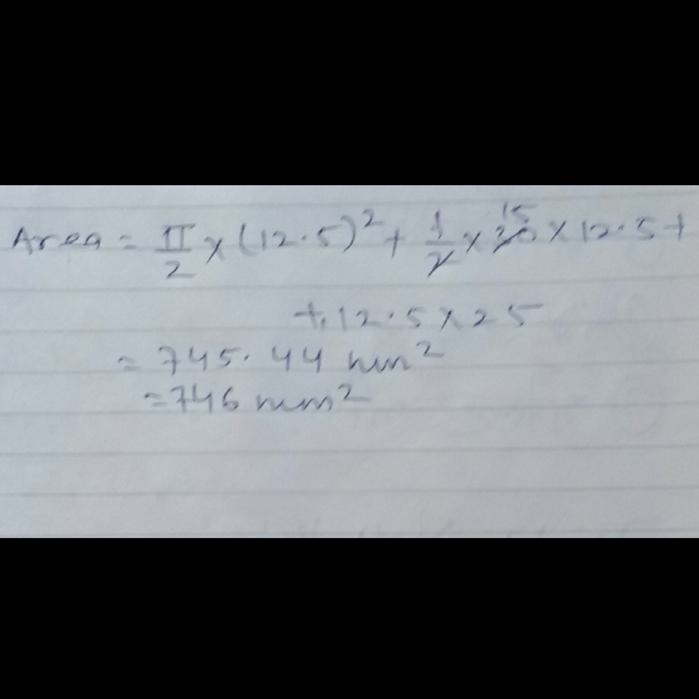 Area = π/2 × (12.5)² + 1/2 × 30 15 × 12.5 +
+ 12.5 × 25
= 745.44 mm²
= 746 mm²